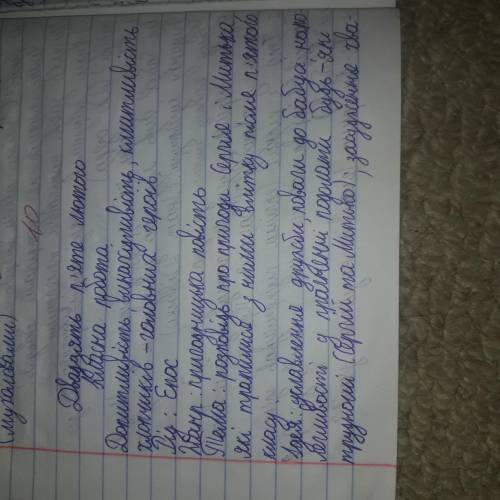 (Мугаловами)
10
Двадцять п'яте лютого
Класна робота
Допитливість, винахідливість, кмітливість
хлопчиків - головних героїв
Рід: Епос
Жанр: пригодницька повість
Тема: розповідь про пригоди Сергія і Митька,
які трапилися з ними влітку після п'ятого
класу
Ідея: уславлення дружби, поваги до бабусі, напо-
легливості у прагненні подолати будь-які
труднощі (Сергій та Митько); засудження ква-